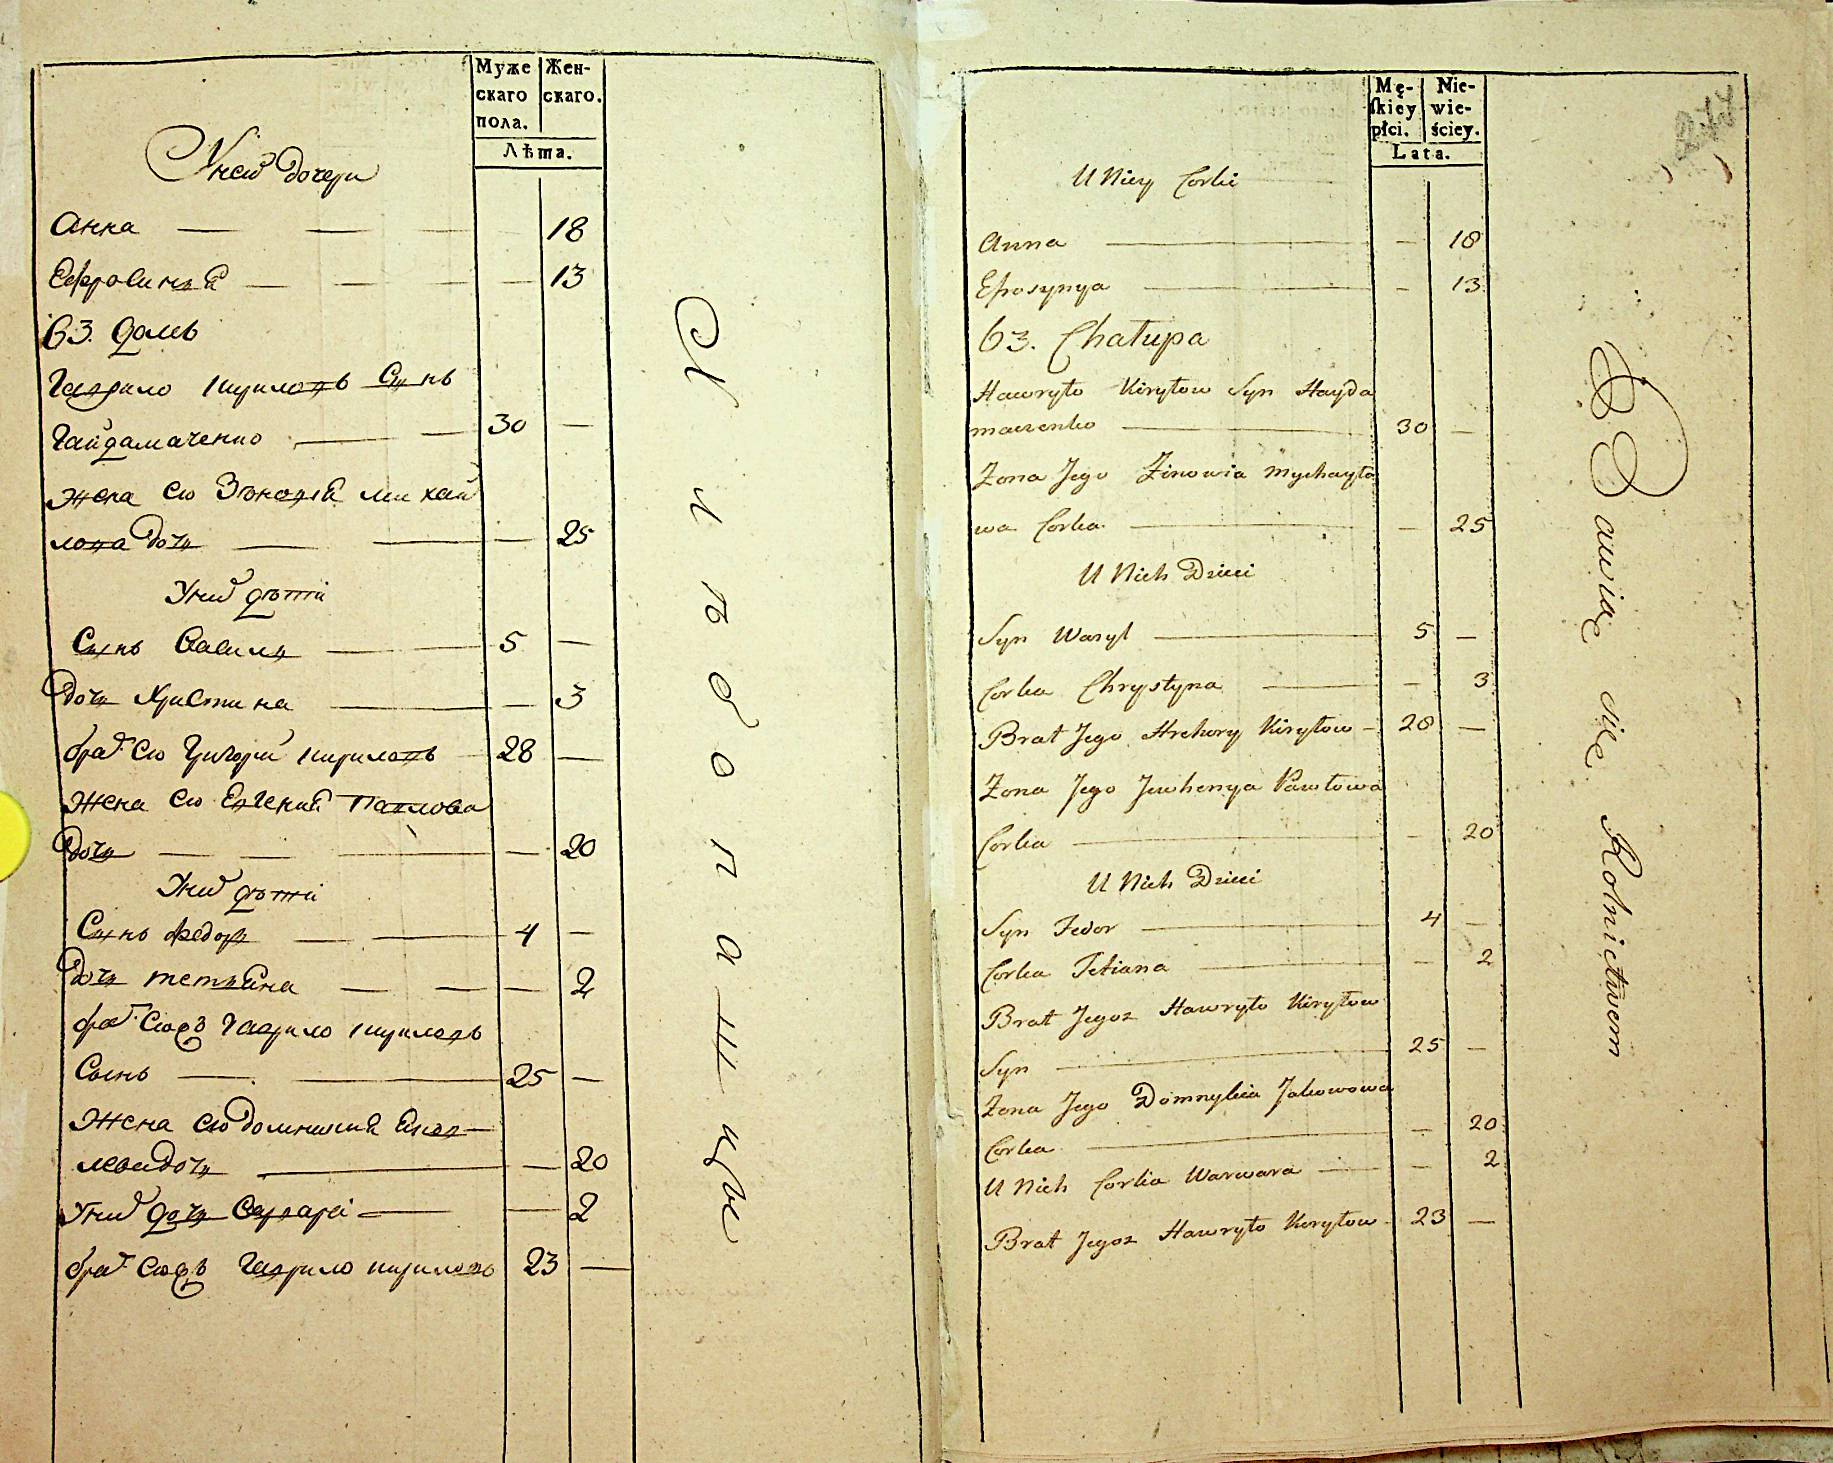 Муже
скаго
пола.
Жен-
скаго.
Лѣта.
У неѡ̑ дочери
Анна — — — 18
Ефросинія — — — 13
63. домъ
Гаврило Кириловъ Сынъ
Гайдамаченко — — 30 —
Жена его Зѣновія Михай
лова дочь — — — 25
У них дѣти
Сынъ Василь — — 5 —
дочь Христина — — 3
брат его Григори Кириловъ 28 —
Жена его Евгения Павлова
дочь — — — 20
У них дѣти
Сынъ Федоръ — — 4 —
дочь Тетьяна — — — 2
брат егожъ Гаврило Кириловъ
Сынъ — — 25 —
Жена его Домникия Яков—
лева дочь — — 20
У них дочь Варвара — — 2
брат егожъ Гаврило Кириловъ 23 —
Хлѣбопашцы
Mę-
ſkiey
płci.
Nie-
wie-
ściey.
Lata.
U Niey Corki
Anna — — 18
Efrosynya — — 13
63. Chałupa
Hawryło Kiryłow Syn Hayda
maczenko — 30 —
Zona Jego Zinowia Mychayło
wa Corka — — 25
U Nich Dzieci
Syn Wasyl — 5 —
Corka Chrystyna — — 3
Brat Jego Hrehory Kiryłow — 28 —
Zona Jego Jewhenya Pawłowa
Corka — — 20
U Nich Dzieci
Syn Fedor — 4 —
Corka Tetiana — — 2
Brat Jegoz Hawryło Kiryłow
Syn — 25 —
Zona Jego Domnykia Jakowowa
Corka — — 20
U Nich Corka Warwara — — 2
Brat Jegoz Hawryło Kiryłow — 23 —
Bawią się Rolnictwem